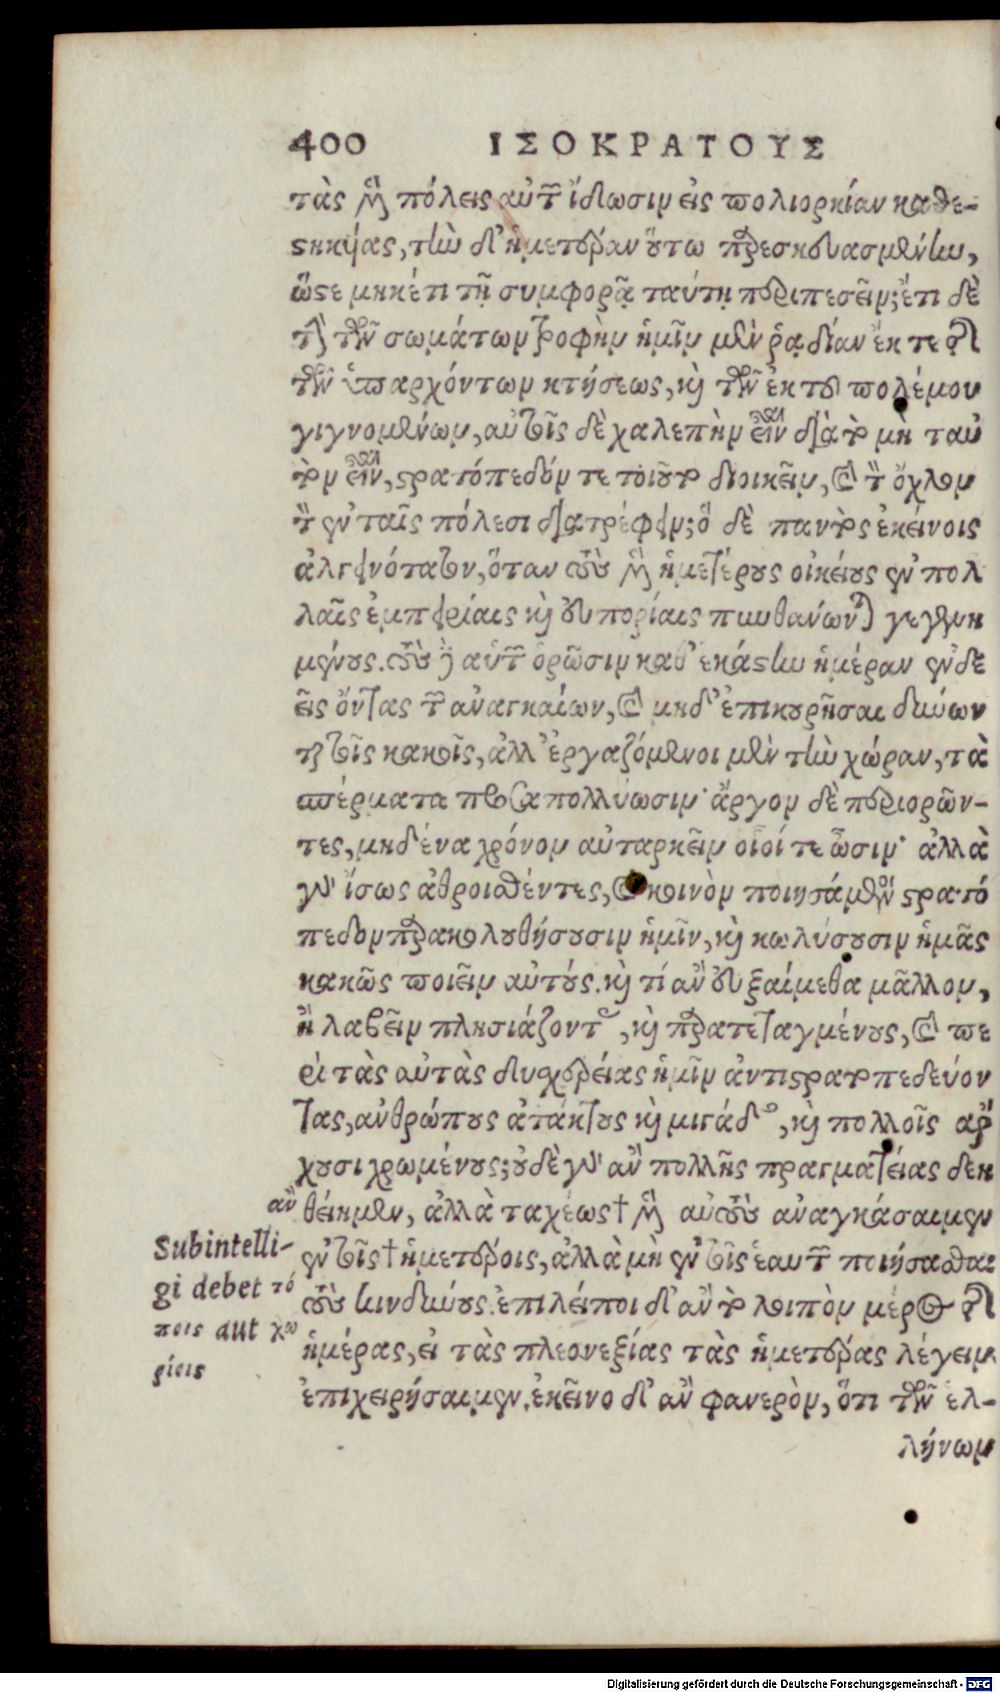 400 ΙΣΟΚΡΑΤΟΥΣ
τὰς μὲν πόλεις αὐτῶν ἴδωσιν εἰς πολιορκίαν καθε-
στηκυίας, τὴν δ' ἡμετέραν οὕτω παρεσκευασμένην,
ὥστε μηκέτι τῇ συμφορᾷ ταύτῃ περιπεσεῖν; ἔτι δὲ
τὴν τῶν σωμάτων τροφὴν ἡμῖν μὲν ῥᾳδίαν ἔκ τε τῶν
τῶν ὑπαρχόντων κτήσεως, καὶ τῶν ἐκ τοῦ πολέμου
γιγνομένων, αὐτοῖς δὲ χαλεπὴν εἶναι διὰ τὸ μὴ ταυ
τὸν εἶναι, στρατόπεδόν τε τοιοῦτο διοικεῖν, καὶ τὸν ὄχλον
τὸν ἐν ταῖς πόλεσι διατρέφειν; ὃ δὲ πάντως ἐκείνοις
ἀλγεινότατον, ὅταν τοὺς μὲν ἡμετέρους οἰκείους ἐν πολ
λαῖς ἐμπειρίαις καὶ εὐπορίαις πυνθάνωνται γεγενη
μένους. τοὺς δὲ αὑτῶν ὁρῶσιν καθ' ἑκάστην ἡμέραν ἐνδε
εῖς ὄντας τῶν ἀναγκαίων, καὶ μηδ' ἐπικουρῆσαι δύνων
ται τοῖς κακοῖς, ἀλλ' ἐργαζόμενοι μὲν τὴν χώραν, τὰ
σπέρματα προσαπολλύωσιν· ἄργον δὲ περιορῶν-
τες, μηδένα χρόνον αὐταρκεῖν οἷοί τε ὦσιν· ἀλλὰ
γὰρ ἴσως ἀθροισθέντες, καὶ κοινὸν ποιησάμενοι στρατό
πεδον παρακολουθήσουσιν ἡμῖν, καὶ κωλύσουσιν ἡμᾶς
κακῶς ποιεῖν αὐτούς. καὶ τί ἂν εὐξαίμεθα μᾶλλον,
ἢ λαβεῖν πλησιάζοντας, καὶ παρατεταγμένους, καὶ πε
ρὶ τὰς αὐτὰς δυσχερείας ἡμῖν ἀντιστρατοπεδεύον
τας, ἀνθρώπους ἀτάκτους καὶ μιγάδας, καὶ πολλοῖς ἄρ
χουσι χρωμένους; οὐδὲ γὰρ ἂν πολλῆς πραγματείας δεη
θείημεν, ἀλλὰ ταχέως† μὲν αὐτοὺς ἀναγκάσαιμεν
ἐν τοῖς† ἡμετέροις, ἀλλὰ μὴ ἐν τοῖς ἑαυτῶν ποιήσασθαι
τοὺς κινδύνους. ἐπιλείποι δ' ἂν τὸ λοιπὸν μέρος τῆς
ἡμέρας, εἰ τὰς πλεονεξίας τὰς ἡμετέρας λέγειν
ἐπιχειρήσαιμεν. ἐκεῖνο δ' ἂν φανερὸν, ὅτι τῶν ἑλ-
λήνων
ἂν
Subintelli-
gi debet τό
ποις aut χω
ρίοις
Digitalisierung gefördert durch die Deutsche Forschungsgemeinschaft - DFG